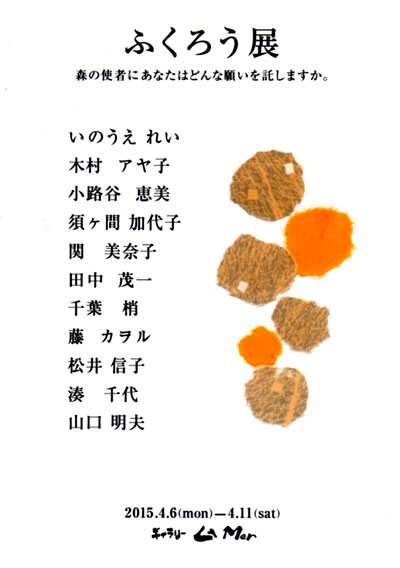 ふくろう展
森の使者にあなたはどんな願いを託しますか。
いのうえ れい
木村 アヤ子
小路谷 恵美
須ヶ間 加代子
関 美奈子
田中 茂一
千葉 梢
藤 カヲル
松井 信子
湊 千代
山口 明夫
2015.4.6(mon)—4.11(sat)
ギャラリー La Mer